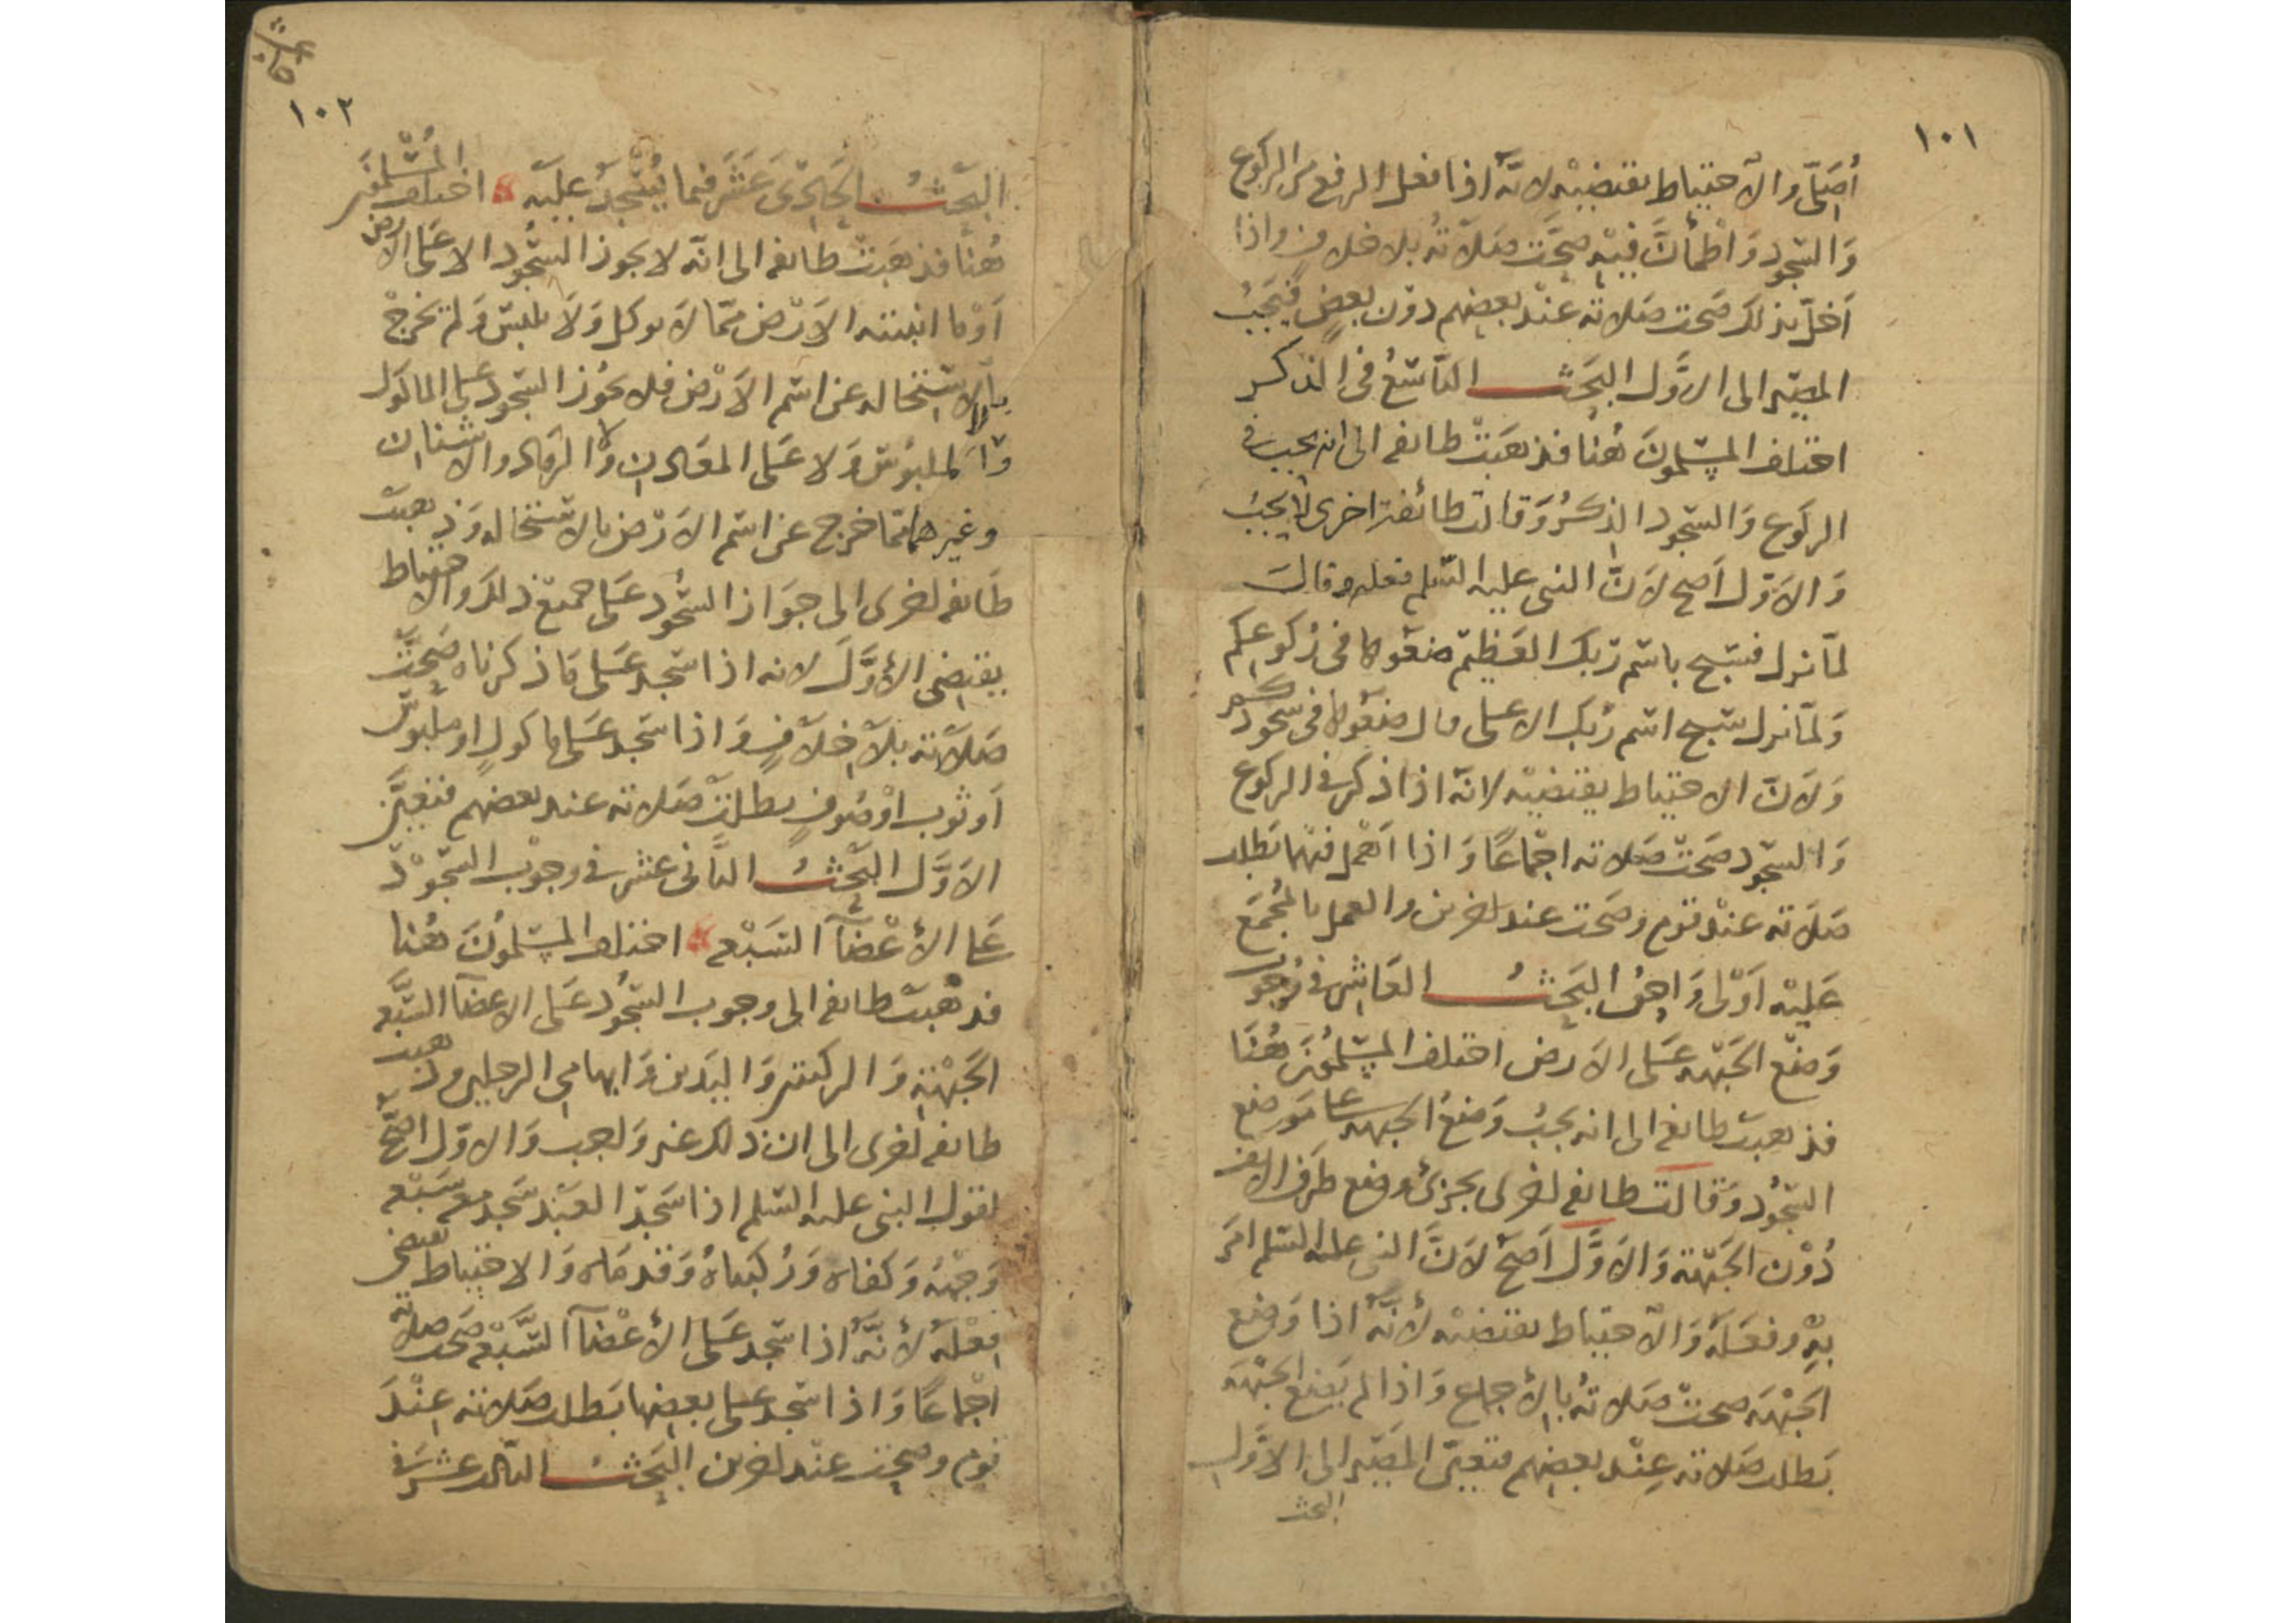 ١٠١
أُصَلّى والاحتياط يقتضيه لانّه اذا فعل الرفع من الركوع
وَالسّجود وَاطمأنّ فيه صحّت صلاته بلا خلاف واذا
اخلّ بذلك صحت صلاته عند بعضهم دون بعض فيجب
المصير الى الاوّل البحث التاسع فى الذكر
اختلف المسلمون هُنا فذهبت طائفه الى انه يجب فى
الركوع وَالسّجود الذكر وَقالت طائفة اخرى لا يجب
وَالاوّل اَصح لانّ النبى عليه السّلم فعله وقال
لمّا نزل فسبح باسم ربك العظيم ضعوها فى ركوعكم
وَلمّا نزل سبح اسم رَبك الاعلى قال ضعوها فى سجودكم
وَلانّ الاحتياط يقتضيه لانّه اذا ذكر فى الركوع
وَالسجود صحّت صلاته اجماعًا وَاذا اهمل فيهما بطلت
صلاته عند قوم وصحت عند اخرين والعمل بالمجمع
عَليه اَوْلى وَاحق البَحث العَاشر فى وُجوب
وَضع الجَبْهه عَلى الارض اختلف المسلمون هُنَا
فذهبت طائفه الى انه يجب وَضعُ الجبهه عَلى موضع
السّجُود وَقالت طائفه اخرى يجزئ وضع طرف الانف
دُون الجَبهة وَالاوّل اَصَحّ لانّ النبى عليه السّلم امَر
بِهِ وفعَلهُ وَالاحتياط يقتضيه لأنّهُ اذا وَضع
الجَبْهَه صحت صَلاتهُ بالإجماع وَاذا لم يَضع الجبْهَه
بَطلت صَلاته عِنْد بعضهم فتعيّن المصير الى الاوّل
البحث
١٠٢
البَحثُ الحَادى عَشَر فيما يُسْجدُ عليه اختلف المُسْلمون
هُنا فذهبت طائفه الى انّه لا يجوز السُّجود الا عَلى الارض
اَوْ ما انبتته الارْض ممّا لا يوكل وَلا يلبس وَلم يخرجْ
بالاستحاله عن اسم الارْض فلا يجُوز السجود على الماكول
وَالملبُوسْ وَلا عَلى المعَادن وَلا الرّماد والاشنان
وغيرهما ممّا خرج عن اسم الارْض بالاستحاله وَذهبت
طَائفه اخرى الى جوَاز السّجُود عَلى جميع ذلك والاحتياط
يقتضى الأوّل لانه اذا سَجد عَلى مَا ذكرناه صَحّتْ
صلاته بلا خلافٍ وَاذا سَجد عَلى ماكولٍ او ملبوس
اَو ثوب اوْ صُوفٍ بطلت صَلاته عند بعضهم فتعيّن
الاوّل البَحثُ الثّانى عشر فى وجوب السّجُوْد
عَلى الأعْضآء السّبْعه اختلف المسْلمُون هُنا
فذهَبت طائفه الى وجوب السّجُود عَلى الاعضآء السّبعه
الجَبْهة وَالركبتين وَاليدين وَابهامى الرجلين وذهبت
طائفه اخرى الى ان ذلك غير وَاجب وَالاوّل اصَحّ
لقول النبى عليه السّلم اذا سَجَد العَبْد سَجد معه سَبْعه
وَجْهُهُ وَكفاه وَرُكبتاه وَقدماه وَالاحتياط يقتضى
فعْلهُ لأنّهُ اذا سَجد عَلى الأعْضآء السّبْعه صحت صلاته
اجْماعًا وَاذا سَجد على بعضها بَطلت صَلاته عِنْدَ
قوم وصحت عند اخرين البَحثُ الثالث عشَر فى